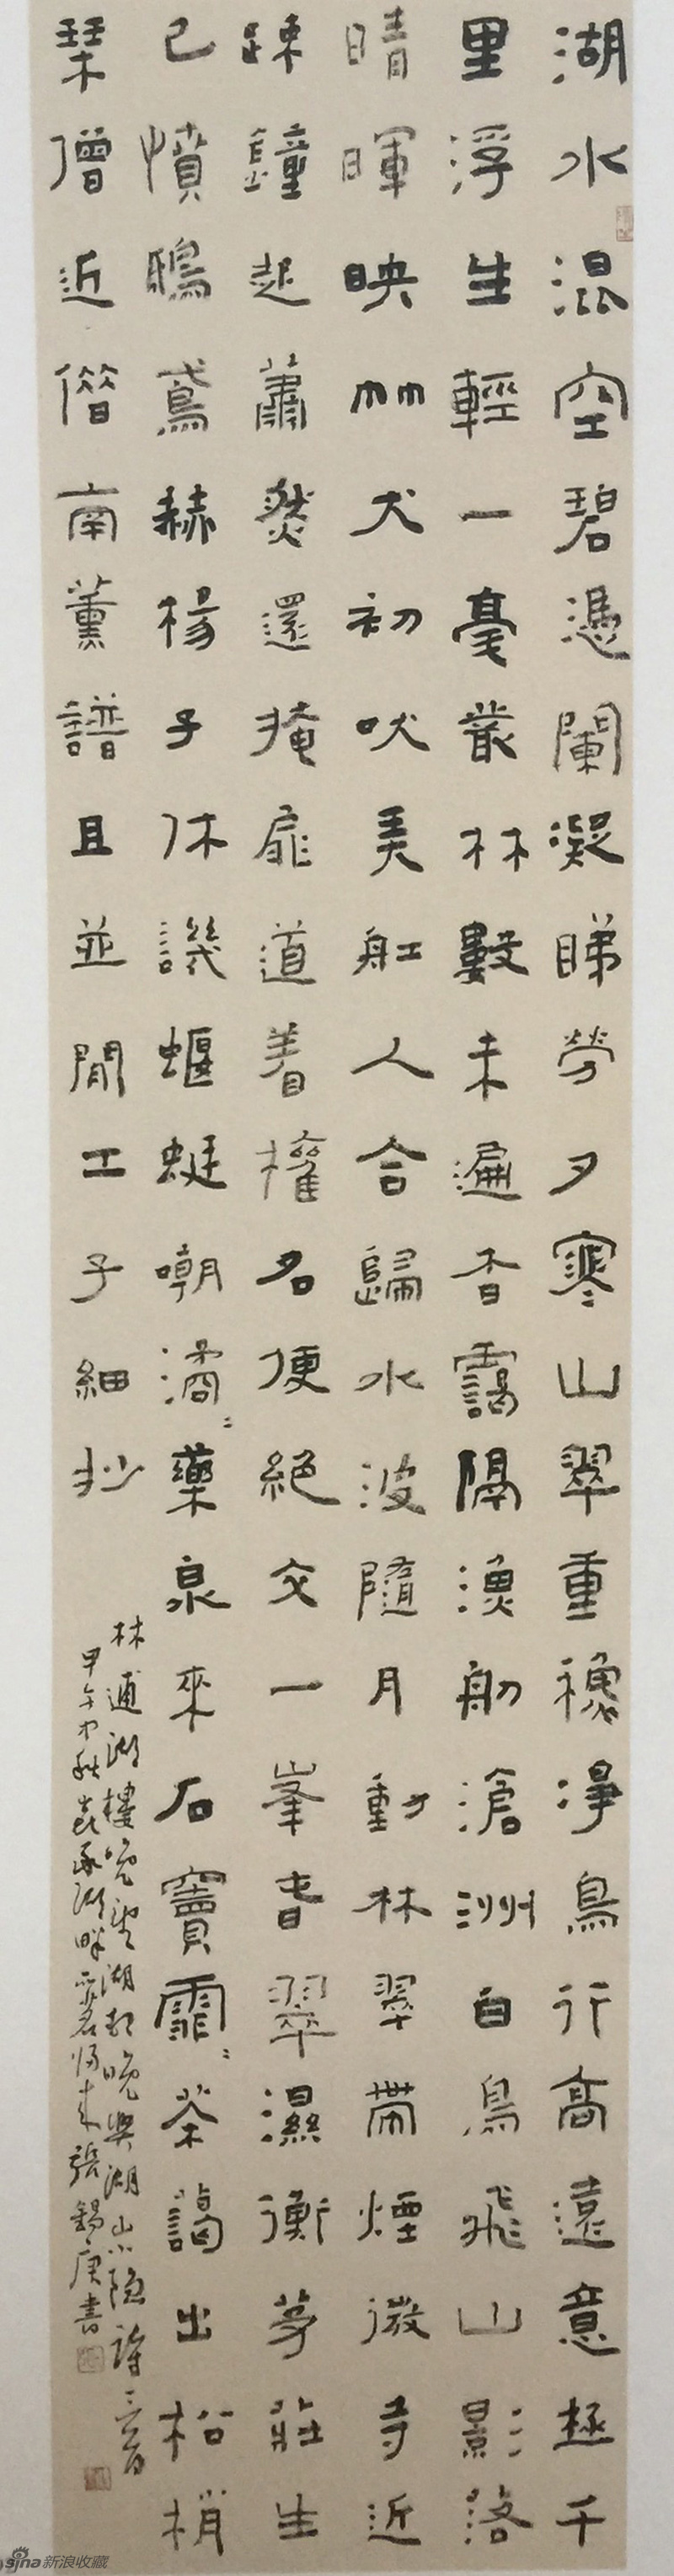 湖水混空碧憑闌凝睇勞夕寒山翠重穐淨鳥行高遠意極千
里浮生輕一毫叢林數未遍杳靄隔漁舠滄洲白鳥飛山影落
晴暉映竹犬初吠弄舡人合歸水波隨月動林翠帶煙微寺近
疎鐘起蕭然還掩扉道着權名便絕交一峯春翠濕衡茅莊生
已憤鴟鳶赫楊子休譏蝘蜓嘲潏〻藥泉來石竇霏〻茶靄出松梢
琹僧近借南薰譜且並閒工子細抄
林逋湖樓晚望湖邨晚興湖山小隱詩三首
甲午中秋 湖畔 歸來張錫庚書
sina新浪收藏